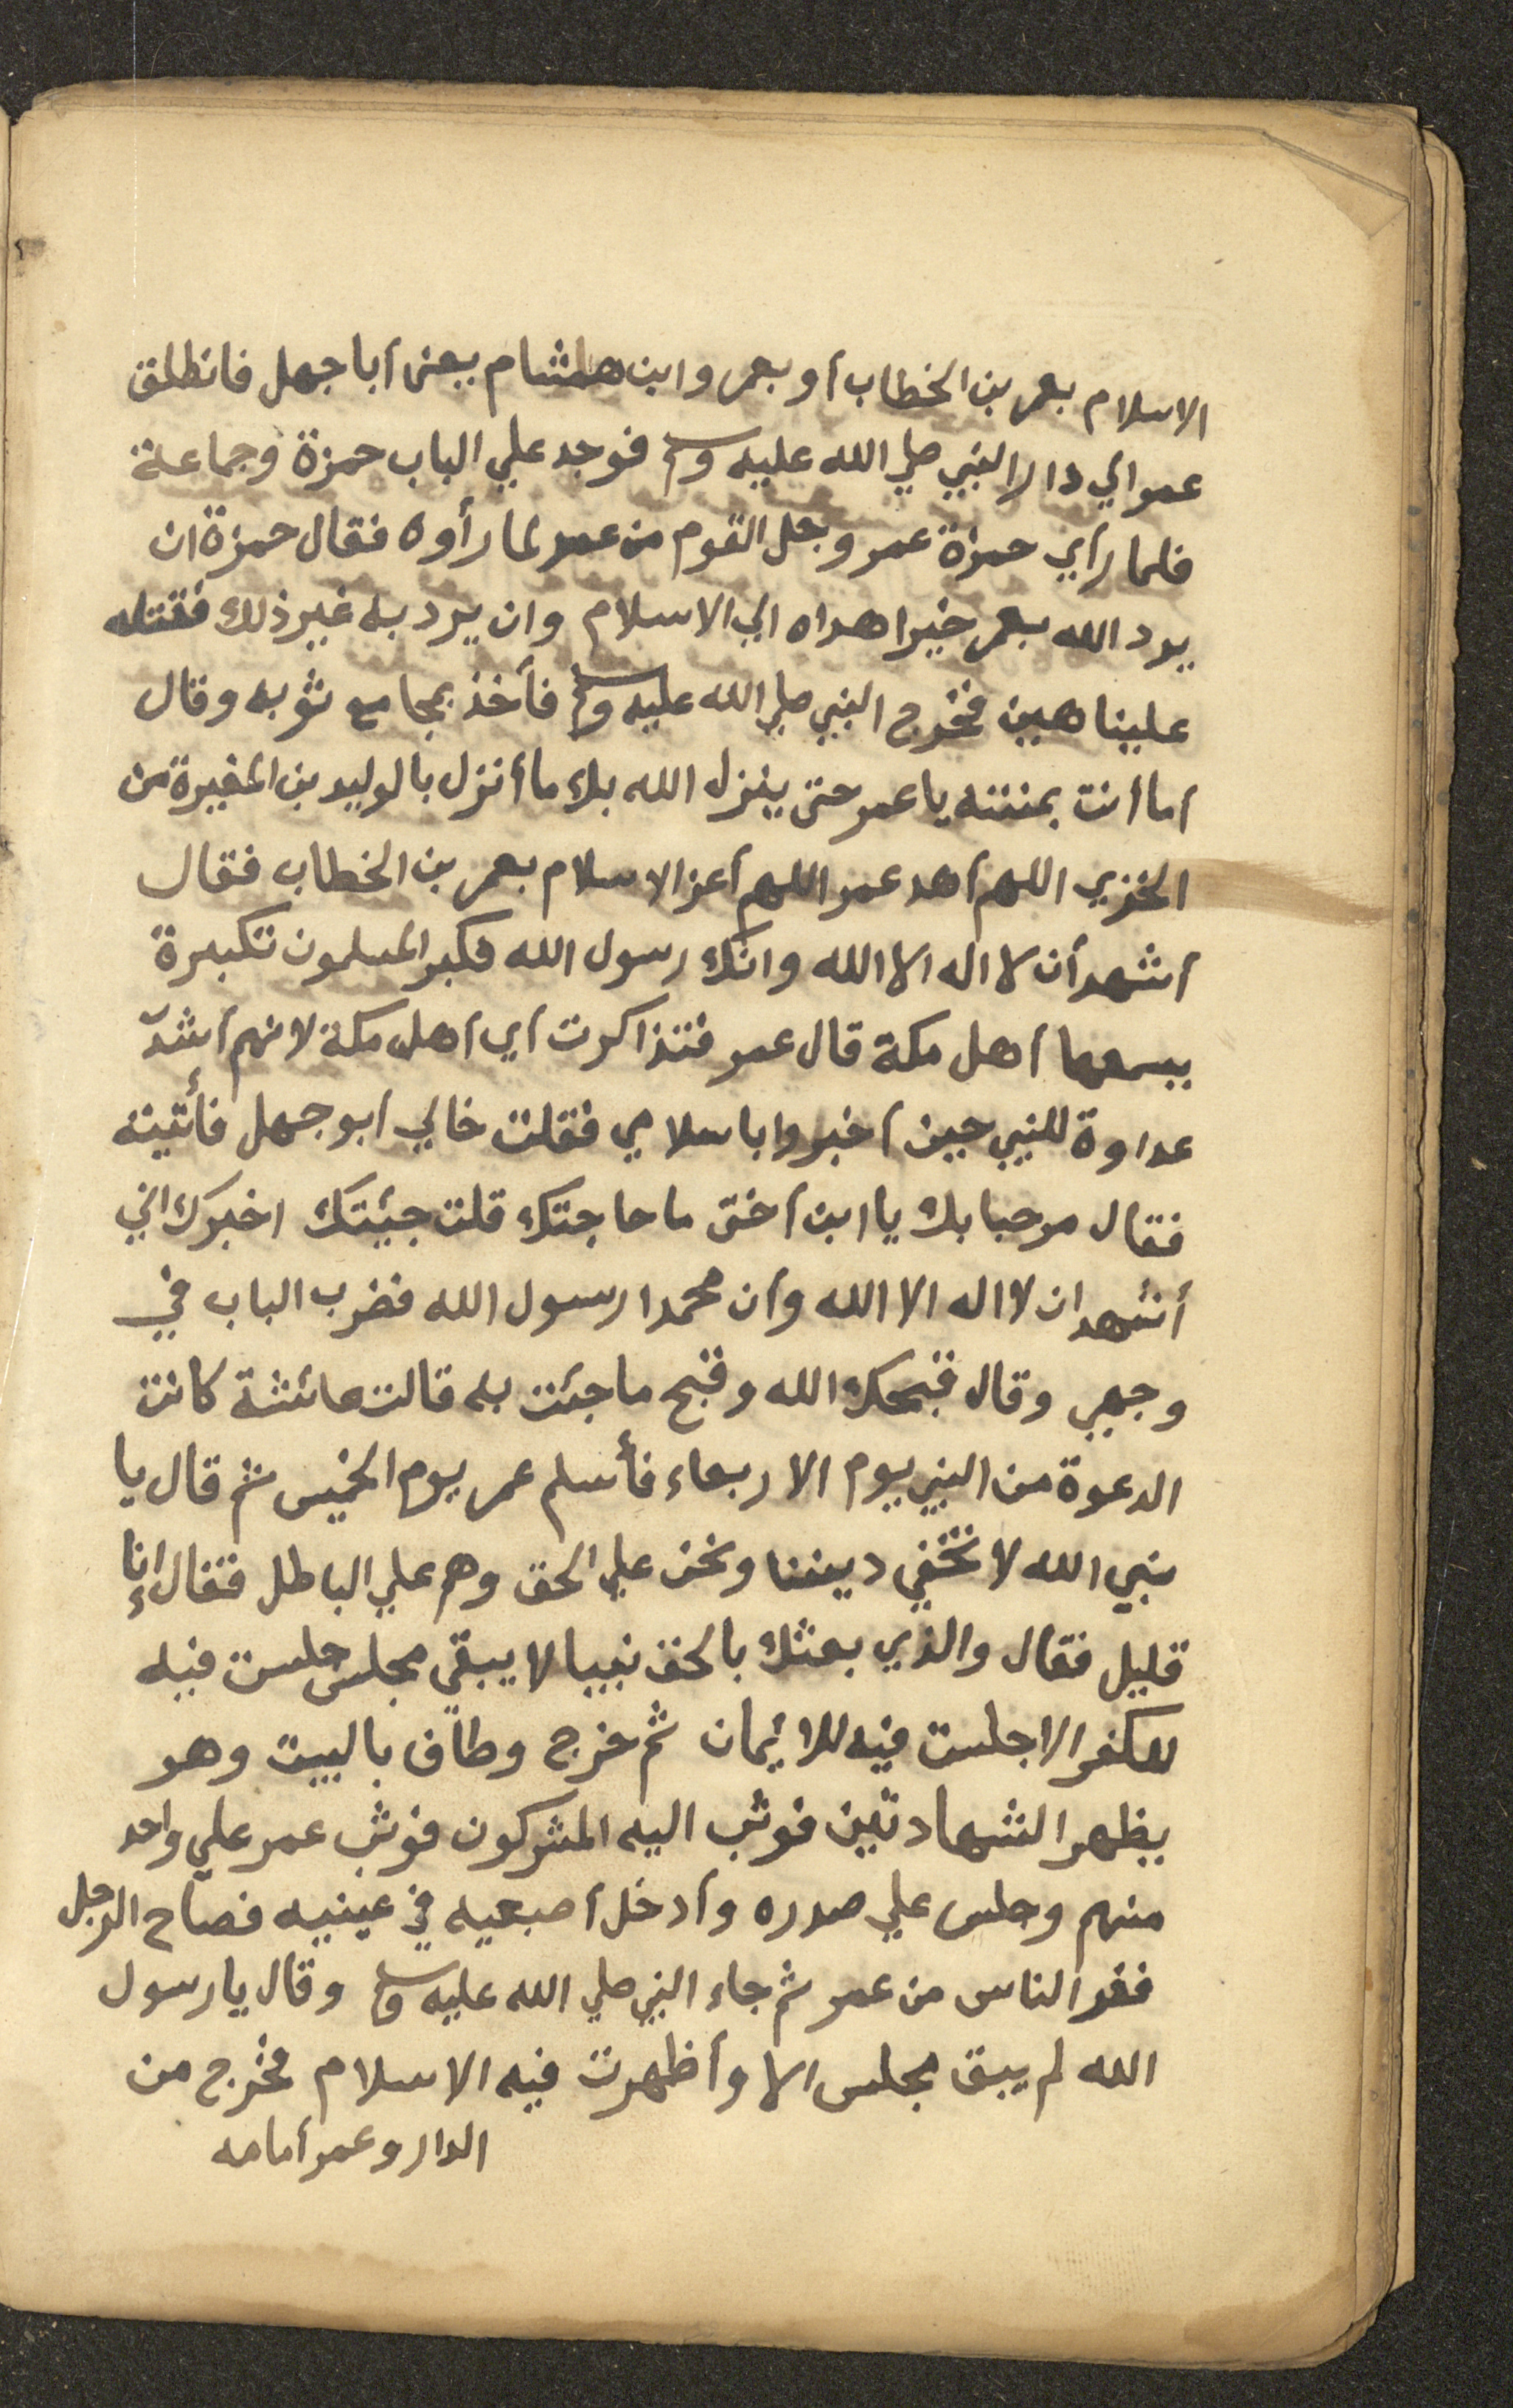 الاسلام بعمر بن الخطاب أو بعمرو ابن هشام يعنى أبا جهل فانطلق
عمر الي دار النبي صلي الله عليه وسلم فوجد علي الباب حمزة وجماعة
فلما رأي حمزة عمر وجل القوم من عمر لما رأوه فقال حمزة ان
يرد الله بعمر خيرا هداه الي الاسلام وان يرد به غير ذلك فقتله
علينا هين فخرج النبي صلي الله عليه وسلم فأخذ بمجامع ثوبه وقال
أما أنت بمنته يا عمر حتى ينزل الله بك ما أنزل بالوليد بن المغيرة من
الخزي اللهم أهد عمر اللهم أعز الاسلام بعمر بن الخطاب فقال
أشهد أن لا اله الا الله وانك رسول الله فكبر المسلمون تكبيرة
يسمعها أهل مكة قال عمر فتذاكرت أي أهل مكة لانهم أشدّ
عداوة للنبي حين أخبروا باسلامي فقلت خالي ابو جهل فأتيته
فقال مرحبا بك يا ابن أختى ما حاجتك قلت جيئتك اخبرك اني
أشهد ان لا اله الا الله وأن محمدا رسول الله فضرب الباب في
وجهي وقال قبحك الله وقبح ما جئت به قالت عائشة كانت
الدعوة من النبي يوم الاربعاء فأسلم عمر يوم الخميس ثم قال يا
نبي الله لا نخفي ديننا ونحن علي الحق وهم علي الباطل فقال إنا
قليل فقال والذي بعثك بالحق نبيا لا يبقي مجلس جلست فيه
للكفر الا جلست فيه للايمان ثم خرج وطاف بالبيت وهو
يظهر الشهادتين فوثب اليه المشركون فوثب عمر علي واحد
منهم وجلس علي صدره وأدخل أصبعيه في عينيه فصاح الرجل
ففر الناس من عمر ثم جاء النبي صلي الله عليه وسلم وقال يا رسول
الله لم يبق مجلس الا وأظهرت فيه الاسلام فخرج من
الدار وعمر أمامه